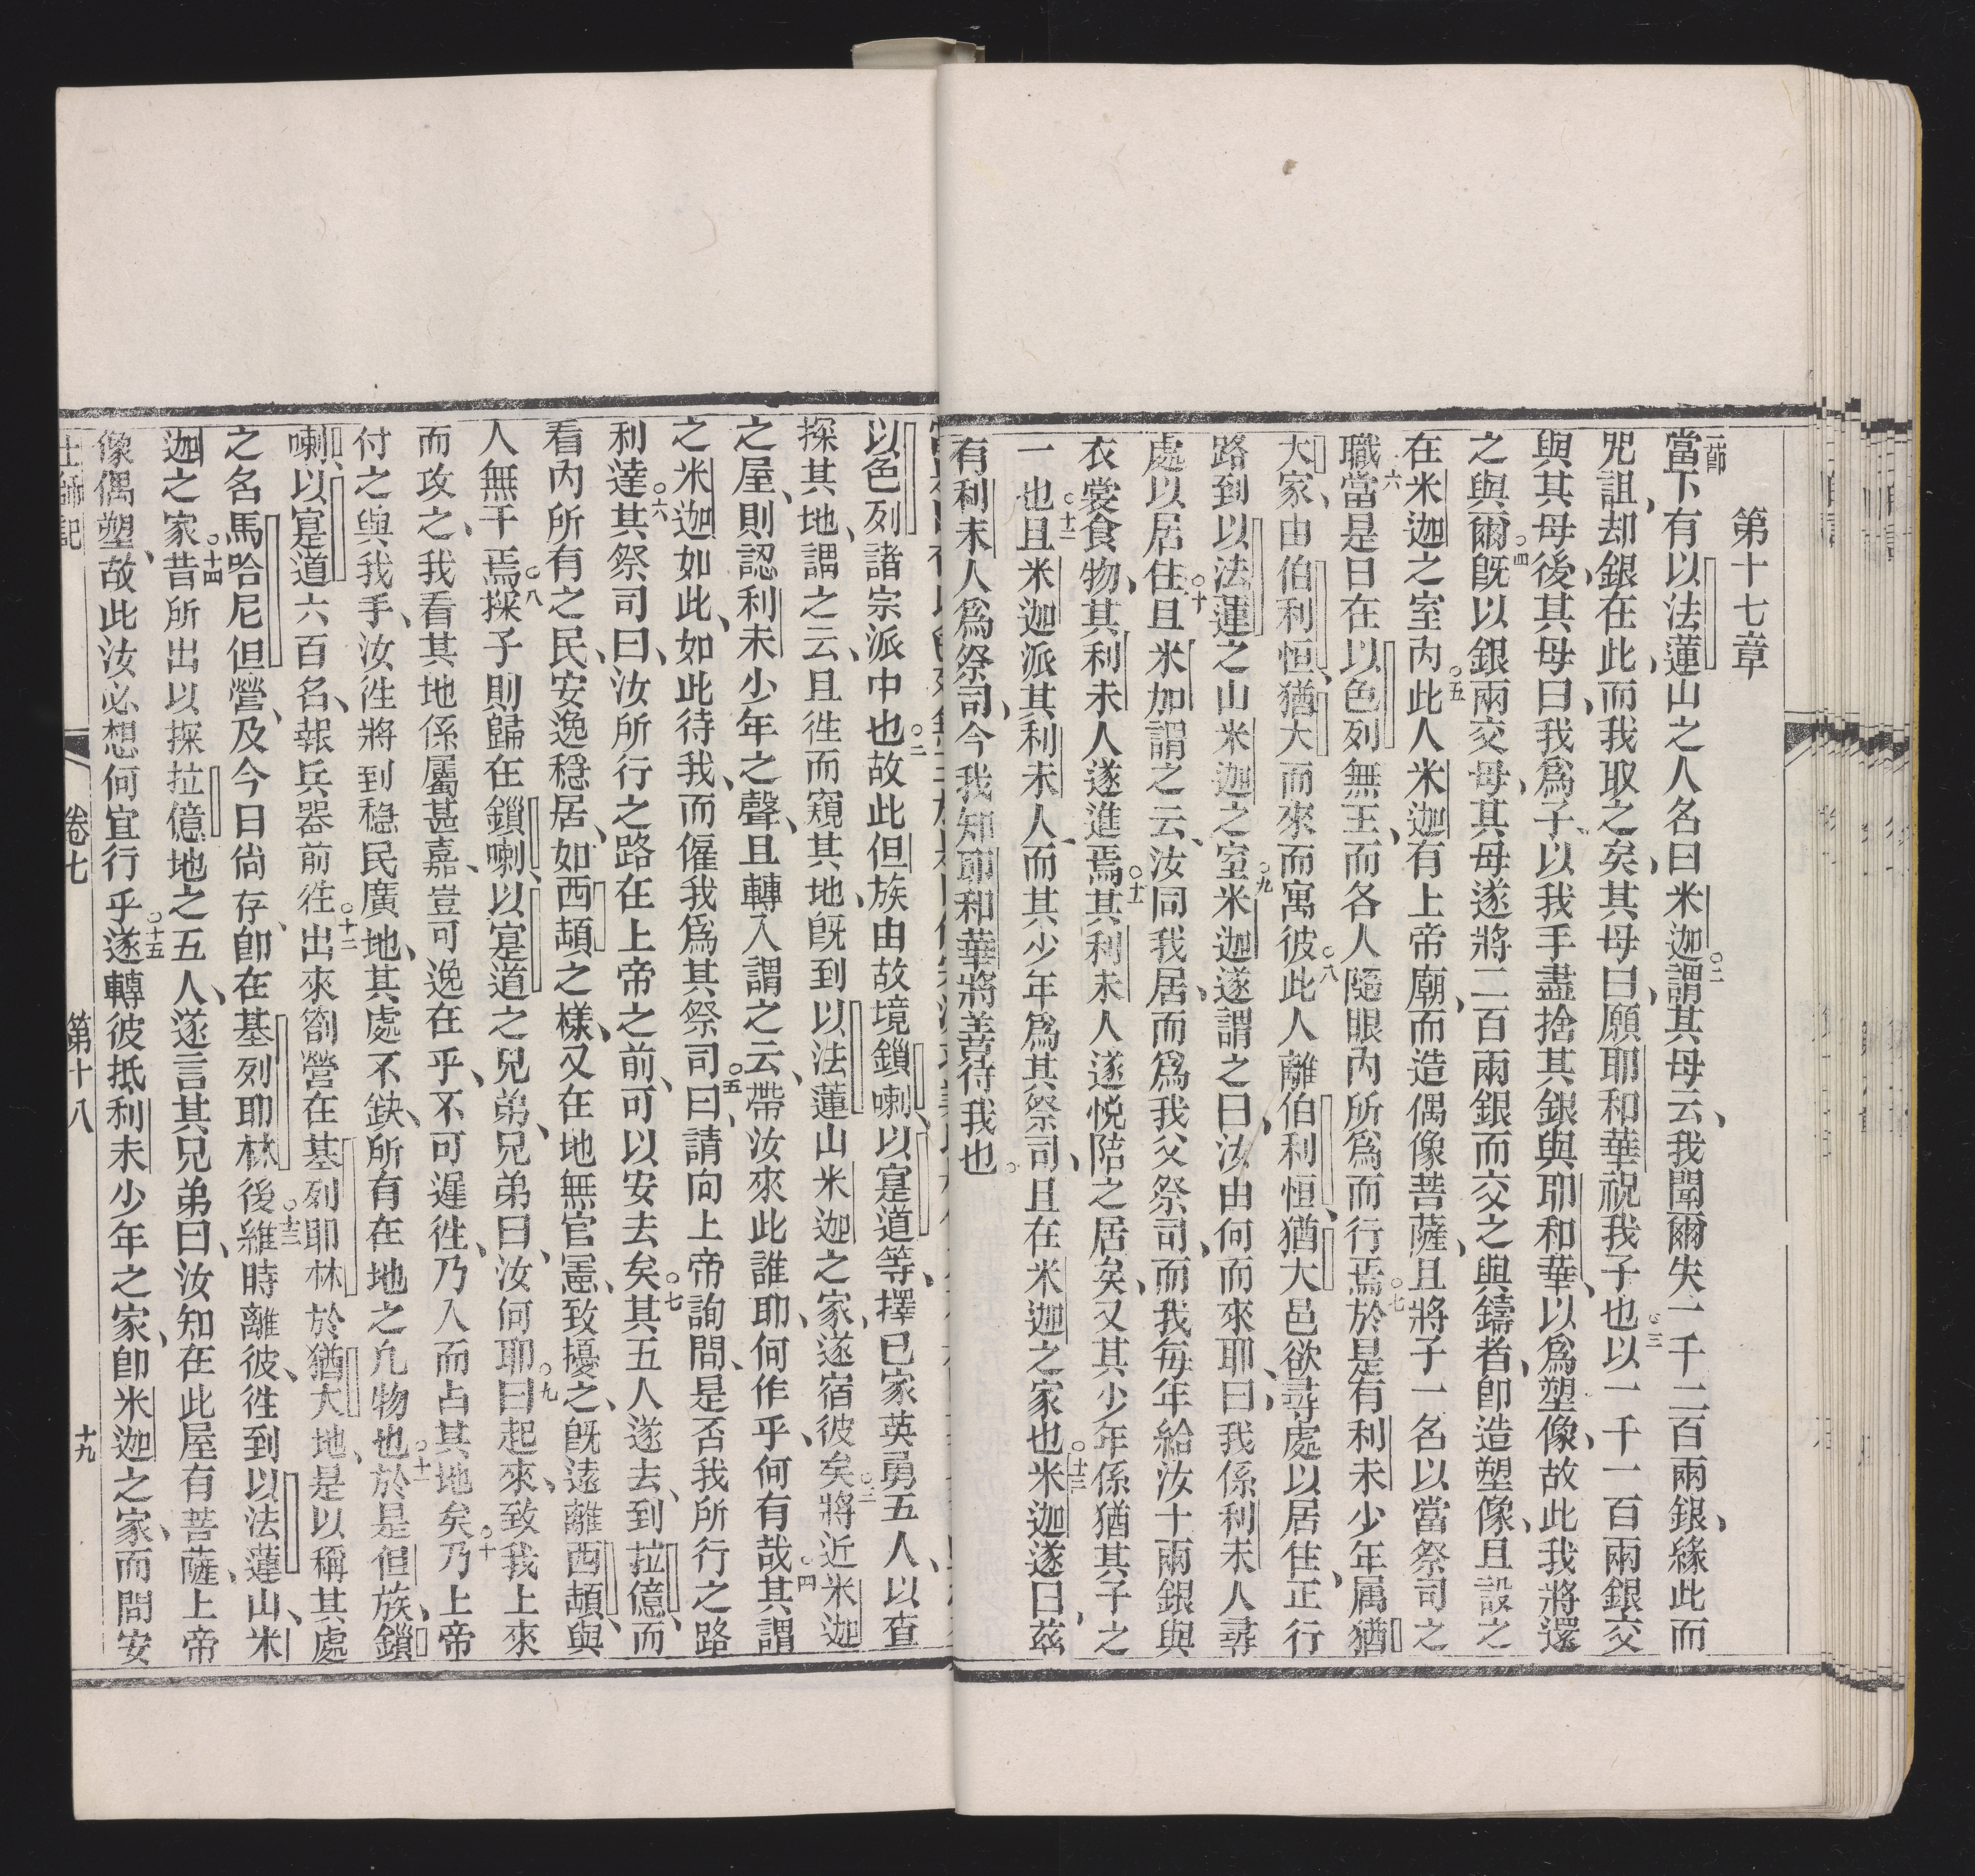 第十七章
一節當下有以法蓮山之人名曰米迦○二謂其母云、我聞爾失一千二百兩銀、緣此而
咒詛、却銀在此、而我取之矣、其母曰、願耶和華祝我子也○三以一千一百兩銀交
與其母後、其母曰、我爲子、以我手盡捨其銀與耶和華、以爲塑像、故此我將還
之與爾○四旣以銀兩交母、其母遂將二百兩銀而交之與鑄者、卽造塑像、且設之
在米迦之室內○五此人米迦有上帝廟、而造偶像菩薩、且將子一名以當祭司之
職○六當是日在以色列無王、而各人隨眼內所爲而行焉○七於是有利未少年属猶
大家、由伯利恒猶大而來而寓彼○八此人離伯利恒、猶大邑欲尋處以居住、正行
路到以法蓮之山米迦之室○九米迦遂謂之曰、汝由何而來耶、曰、我係利未人尋
處以居住○十且米加謂之云、汝同我居、而爲我父祭司、而我每年給汝十兩銀與
衣裳食物、其利未人遂進焉○十一其利未人遂悅陪之居矣、又其少年係猶其子之
一也○十二且米迦派其利未人、而其少年爲其祭司、且在米迦之家也○十三米迦遂曰、茲
有利未人爲祭司、今我知耶和華將善待我也○
以色列諸宗派中也○二故此但族由故境鎖喇、以寔道等、擇已家英勇五人、以查
探其地、謂之云、且徃而窺其地、旣到以法蓮山米迦之家、遂宿彼矣○三將近米迦
之屋、則認利未少年之聲、且轉入謂之云、帶汝來此誰耶、何作乎、何有哉○四其謂
之米迦如此、如此待我、而僱我爲其祭司○五曰、請向上帝詢問、是否我所行之路
利達○六其祭司曰、汝所行之路在上帝之前、可以安去矣○七其五人遂去、到拉億、而
看內所有之民、安逸穩居、如西頡之樣、又在地無官憲、致擾之、旣遠離西頡與
人無干焉○八探子則歸在鎖喇、以寔道之兄弟、兄弟曰、汝何耶○九曰起來、致我上來
而攻之、我看其地係屬甚嘉、豈可逸在乎、不可遲徃、乃入而占其地矣○十乃上帝
付之與我手、汝徃將到穩民廣地、其處不缺、所有在地之凡物也○十一於是但族、鎖
喇、以寔道六百名、報兵器前徃○十二出來劄營在基列耶林於猶大地、是以稱其處
之名馬哈尼但營、及今日尙存、卽在基列耶林後○十三維時離彼、徃到以法蓮山、米
迦之家○十四昔所出以探拉億地之五人、遂言其兄弟曰、汝知在此屋有菩薩、上帝
像偶塑、故此汝必想何宜行乎○十五遂轉彼抵利未少年之家、卽米迦之家、而問安
士師記　卷七　第十八　十九